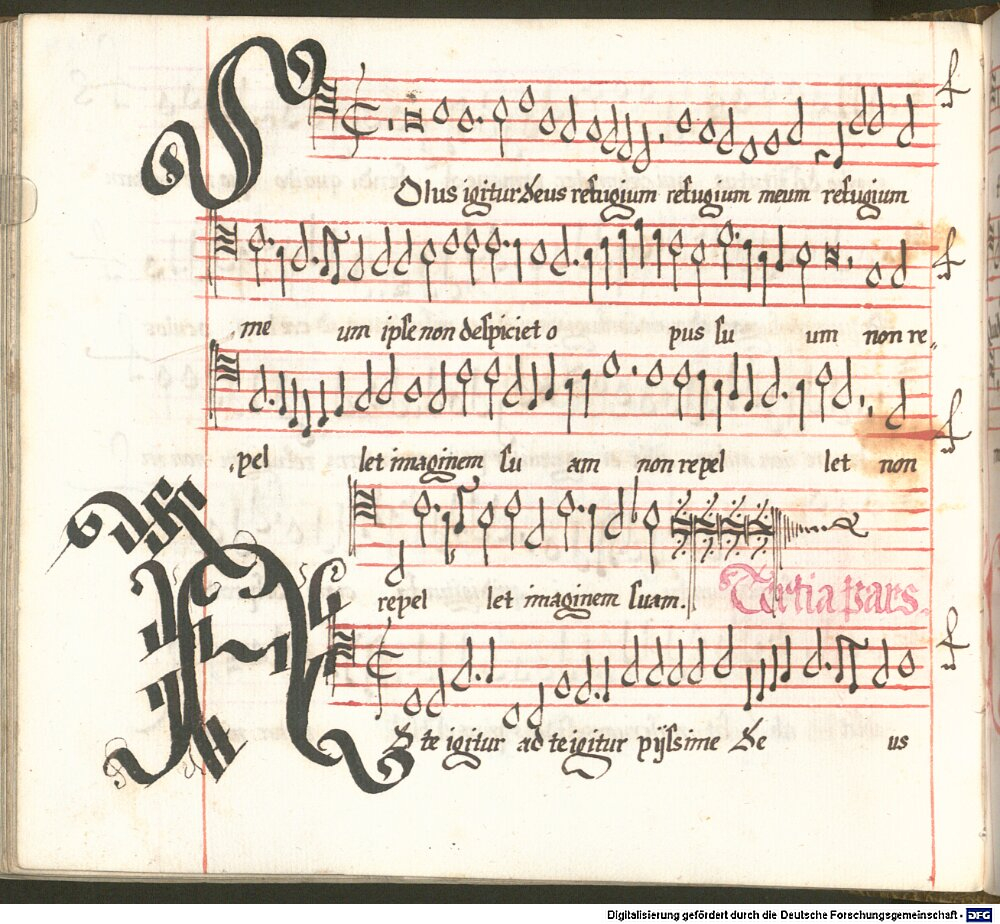 SOlus igitur Deus refugium refugium meum refugium
me um ipse non despiciet o pus su um non re„
„pel let imaginem su am non repel let non
repel let imaginem suam.
Tertia pars.
AD te igitur ad te igitur pijssime De us
Digitalisierung gefördert durch die Deutsche Forschungsgemeinschaft - DFG